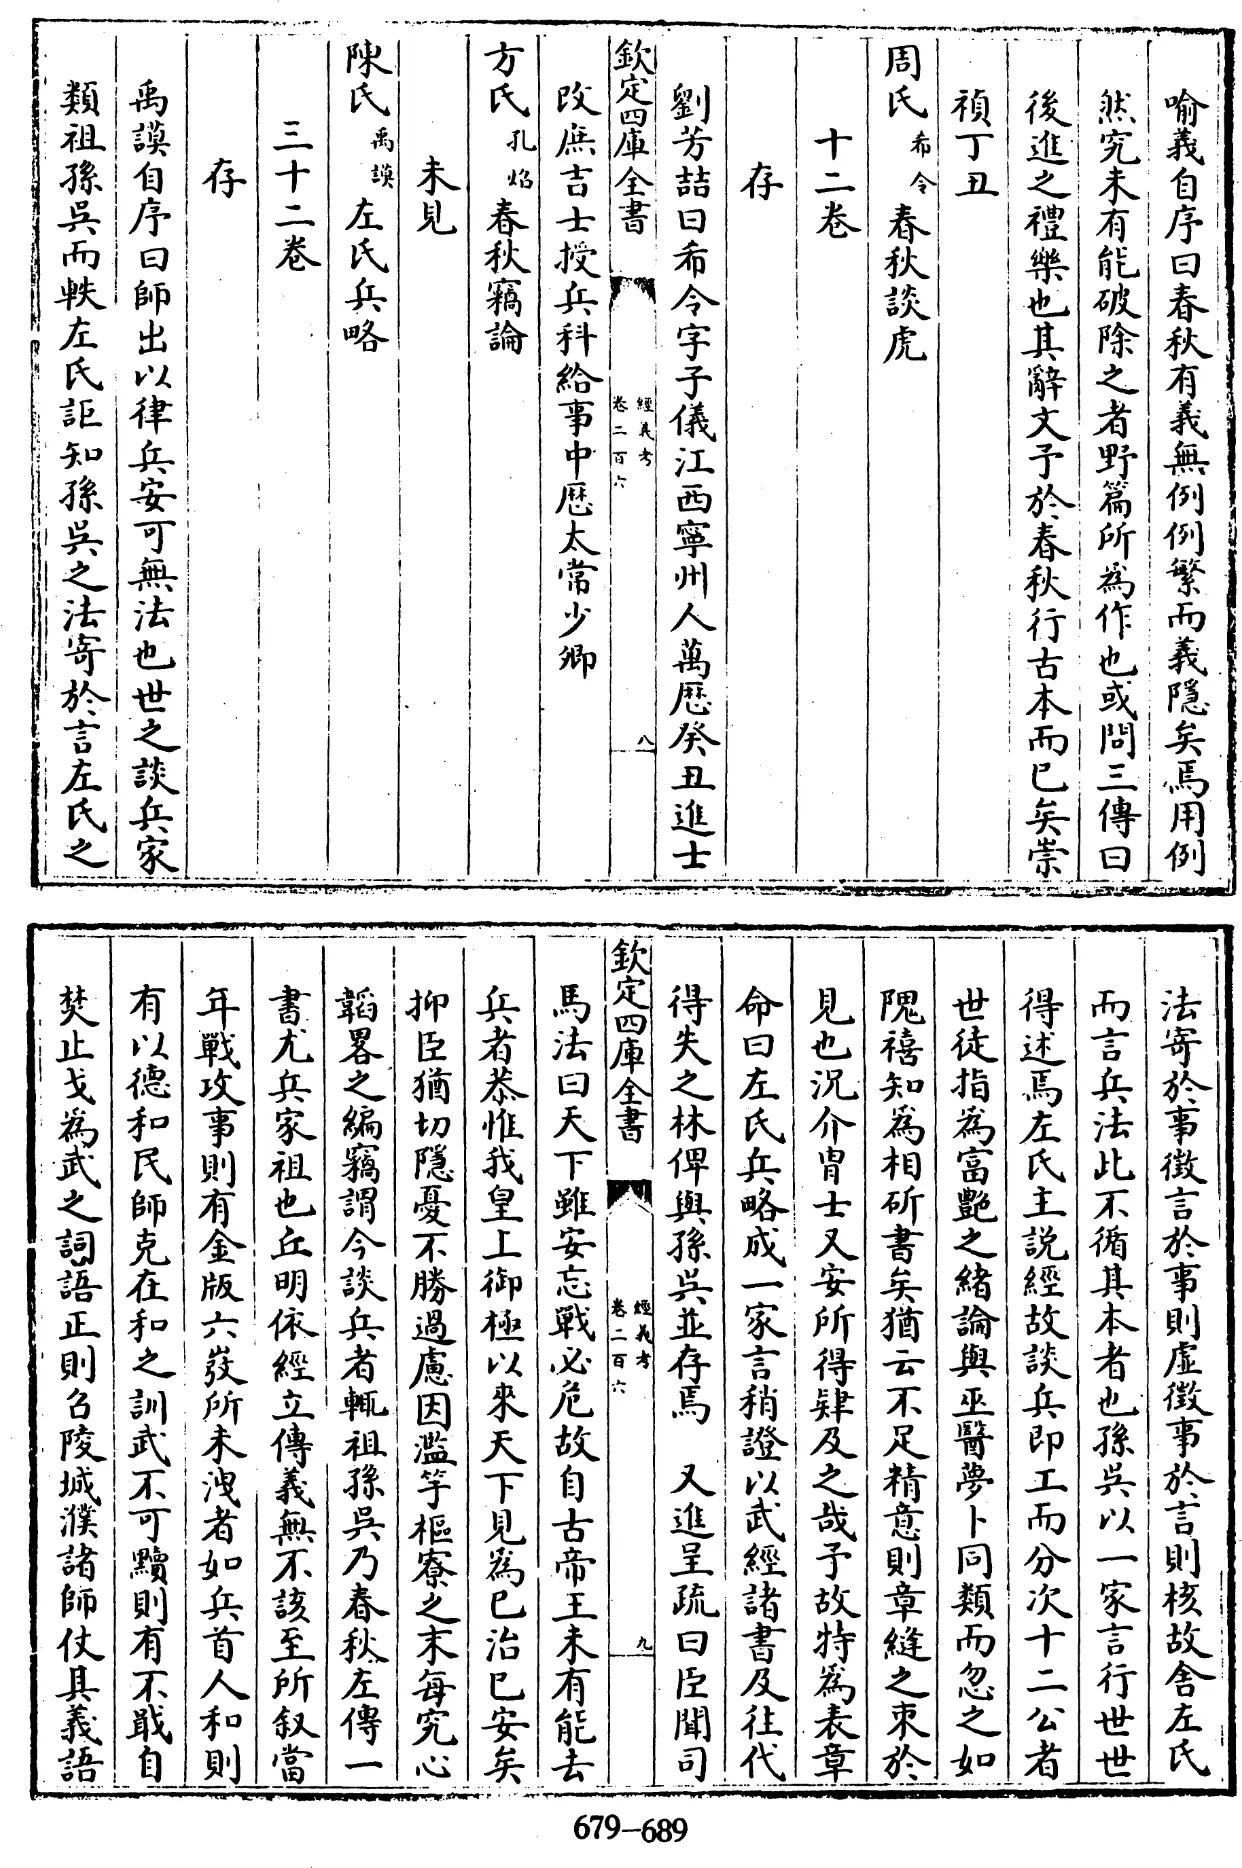 喻義自序曰春秋有義無例例繁而義隱矣焉用例
然究未有能破除之者野篇所爲作也或問三傳曰
後進之禮樂也其辭文予於春秋行古本而已矣崇
禎丁丑
周氏希令春秋談虎
十二卷
存
劉芳喆曰希令字子儀江西寧州人萬厯癸丑進士
欽定四庫全書 經義考 卷二百六 八
改庶吉士授兵科給事中厯太常少卿
方氏孔炤春秋竊論
未見
陳氏禹謨左氏兵略
三十二卷
存
禹謨自序曰師出以律兵安可無法也世之談兵家
類祖孫吳而軼左氏詎知孫吳之法寄於言左氏之
法寄於事徵言於事則虛徵事於言則核故舍左氏
而言兵法此不循其本者也孫吳以一家言行世世
得述焉左氏主説經故談兵即工而分次十二公者
世徒指爲富艷之緒論與巫醫夢卜同類而忽之如
隗禧知爲相斫書矣猶云不足精意則章縫之束於
見也況介冑士又安所得肄及之哉予故特爲表章
命曰左氏兵略成一家言稍證以武經諸書及往代
得失之林俾與孫吳並存焉 又進呈疏曰臣聞司
欽定四庫全書 經義考 卷二百六 九
馬法曰天下雖安忘戰必危故自古帝王未有能去
兵者恭惟我皇上御極以來天下見爲已治已安矣
抑臣猶切隱憂不勝過慮因濫竽樞寮之末每究心
韜畧之編竊謂今談兵者輒祖孫吳乃春秋左傳一
書尤兵家祖也丘明依經立傳義無不該至所叙當
年戰攻事則有金版六弢所未洩者如兵首人和則
有以德和民師克在和之訓武不可黷則有不戢自
焚止戈爲武之詞語正則召陵城濮諸師仗具義語
679-689